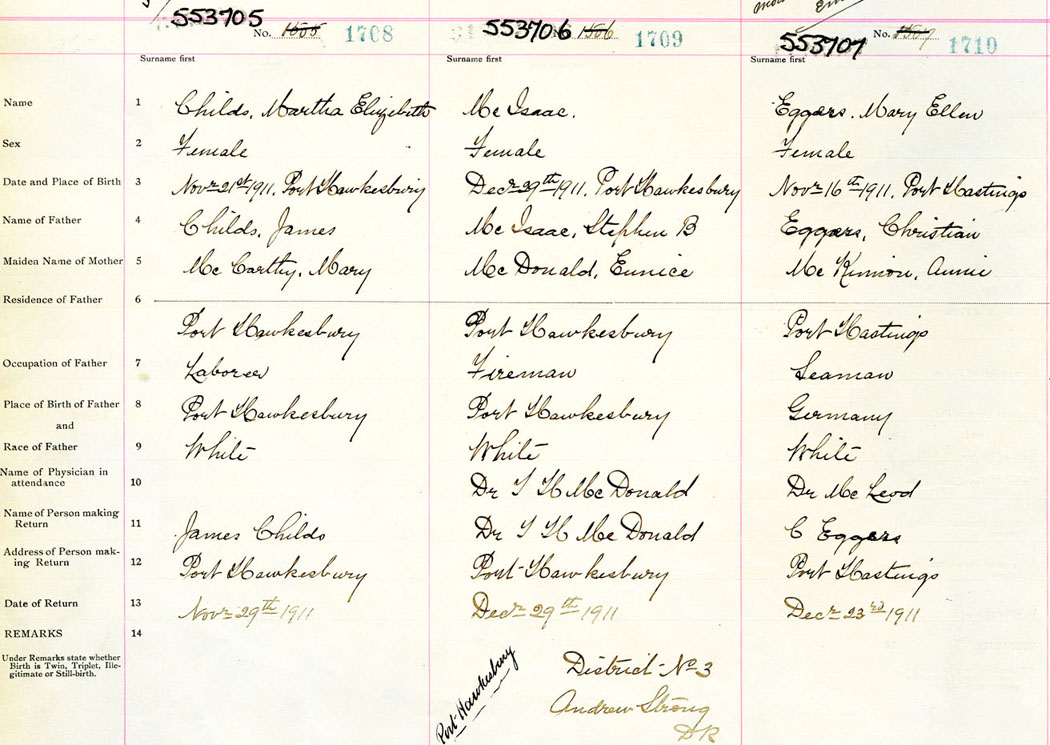 553705 No. 1555 1708 553706 1556 1709 553707 No. 1557 1710
Surname first Surname first Surname first
Name 1 Childs, Martha Elizibeth Mc Isaac. Eggers. Mary Ellen
Sex 2 Female Female Female
Date and Place of Birth 3 Novr 21st 1911. Port Hawkesbury Decr 29th 1911. Port Hawkesbury Novr 16th 1911. Port Hastings
Name of Father 4 Childs, James Mc Isaac, Stephen B Eggers, Christian
Maiden Name of Mother 5 Mc Carthy, Mary Mc Donald, Eunice Mc Kinnon, Annie
Residence of Father 6
Port Hawkesbury Port Hawkesbury Port Hastings
Occupation of Father 7 Laborer Fireman Seaman
Place of Birth of Father 8 Port Hawkesbury Port Hawkesbury Germany
and
Race of Father 9 White White White
Name of Physician in
attendance 10 Dr Mc Donald Dr Mc Leod
Name of Person making
Return 11 James Childs Dr Mc Donald C Eggers
Address of Person mak-
ing Return 12 Port Hawkesbury Port Hawkesbury Port Hastings
Date of Return 13 Novr 29th 1911 Decr 29th 1911 Decr 23rd 1911
REMARKS 14
Under Remarks state whether
Birth is Twin, Triplet, Ille-
gitimate or Still-birth.
Port Hawkesbury
District No 3
Andrew Strong
DR